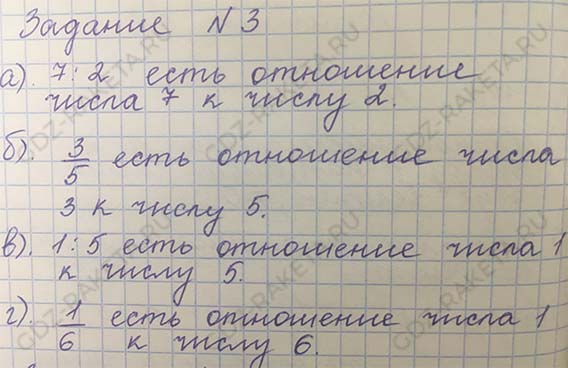 Задание N 3
а). 7 : 2 есть отношение
числа 7 к числу 2.
б). 3/5 есть отношение числа
3 к числу 5.
в). 1 : 5 есть отношение числа 1
к числу 5.
г). 1/6 есть отношение числа 1
к числу 6.
GDZ-RAKETA.RU